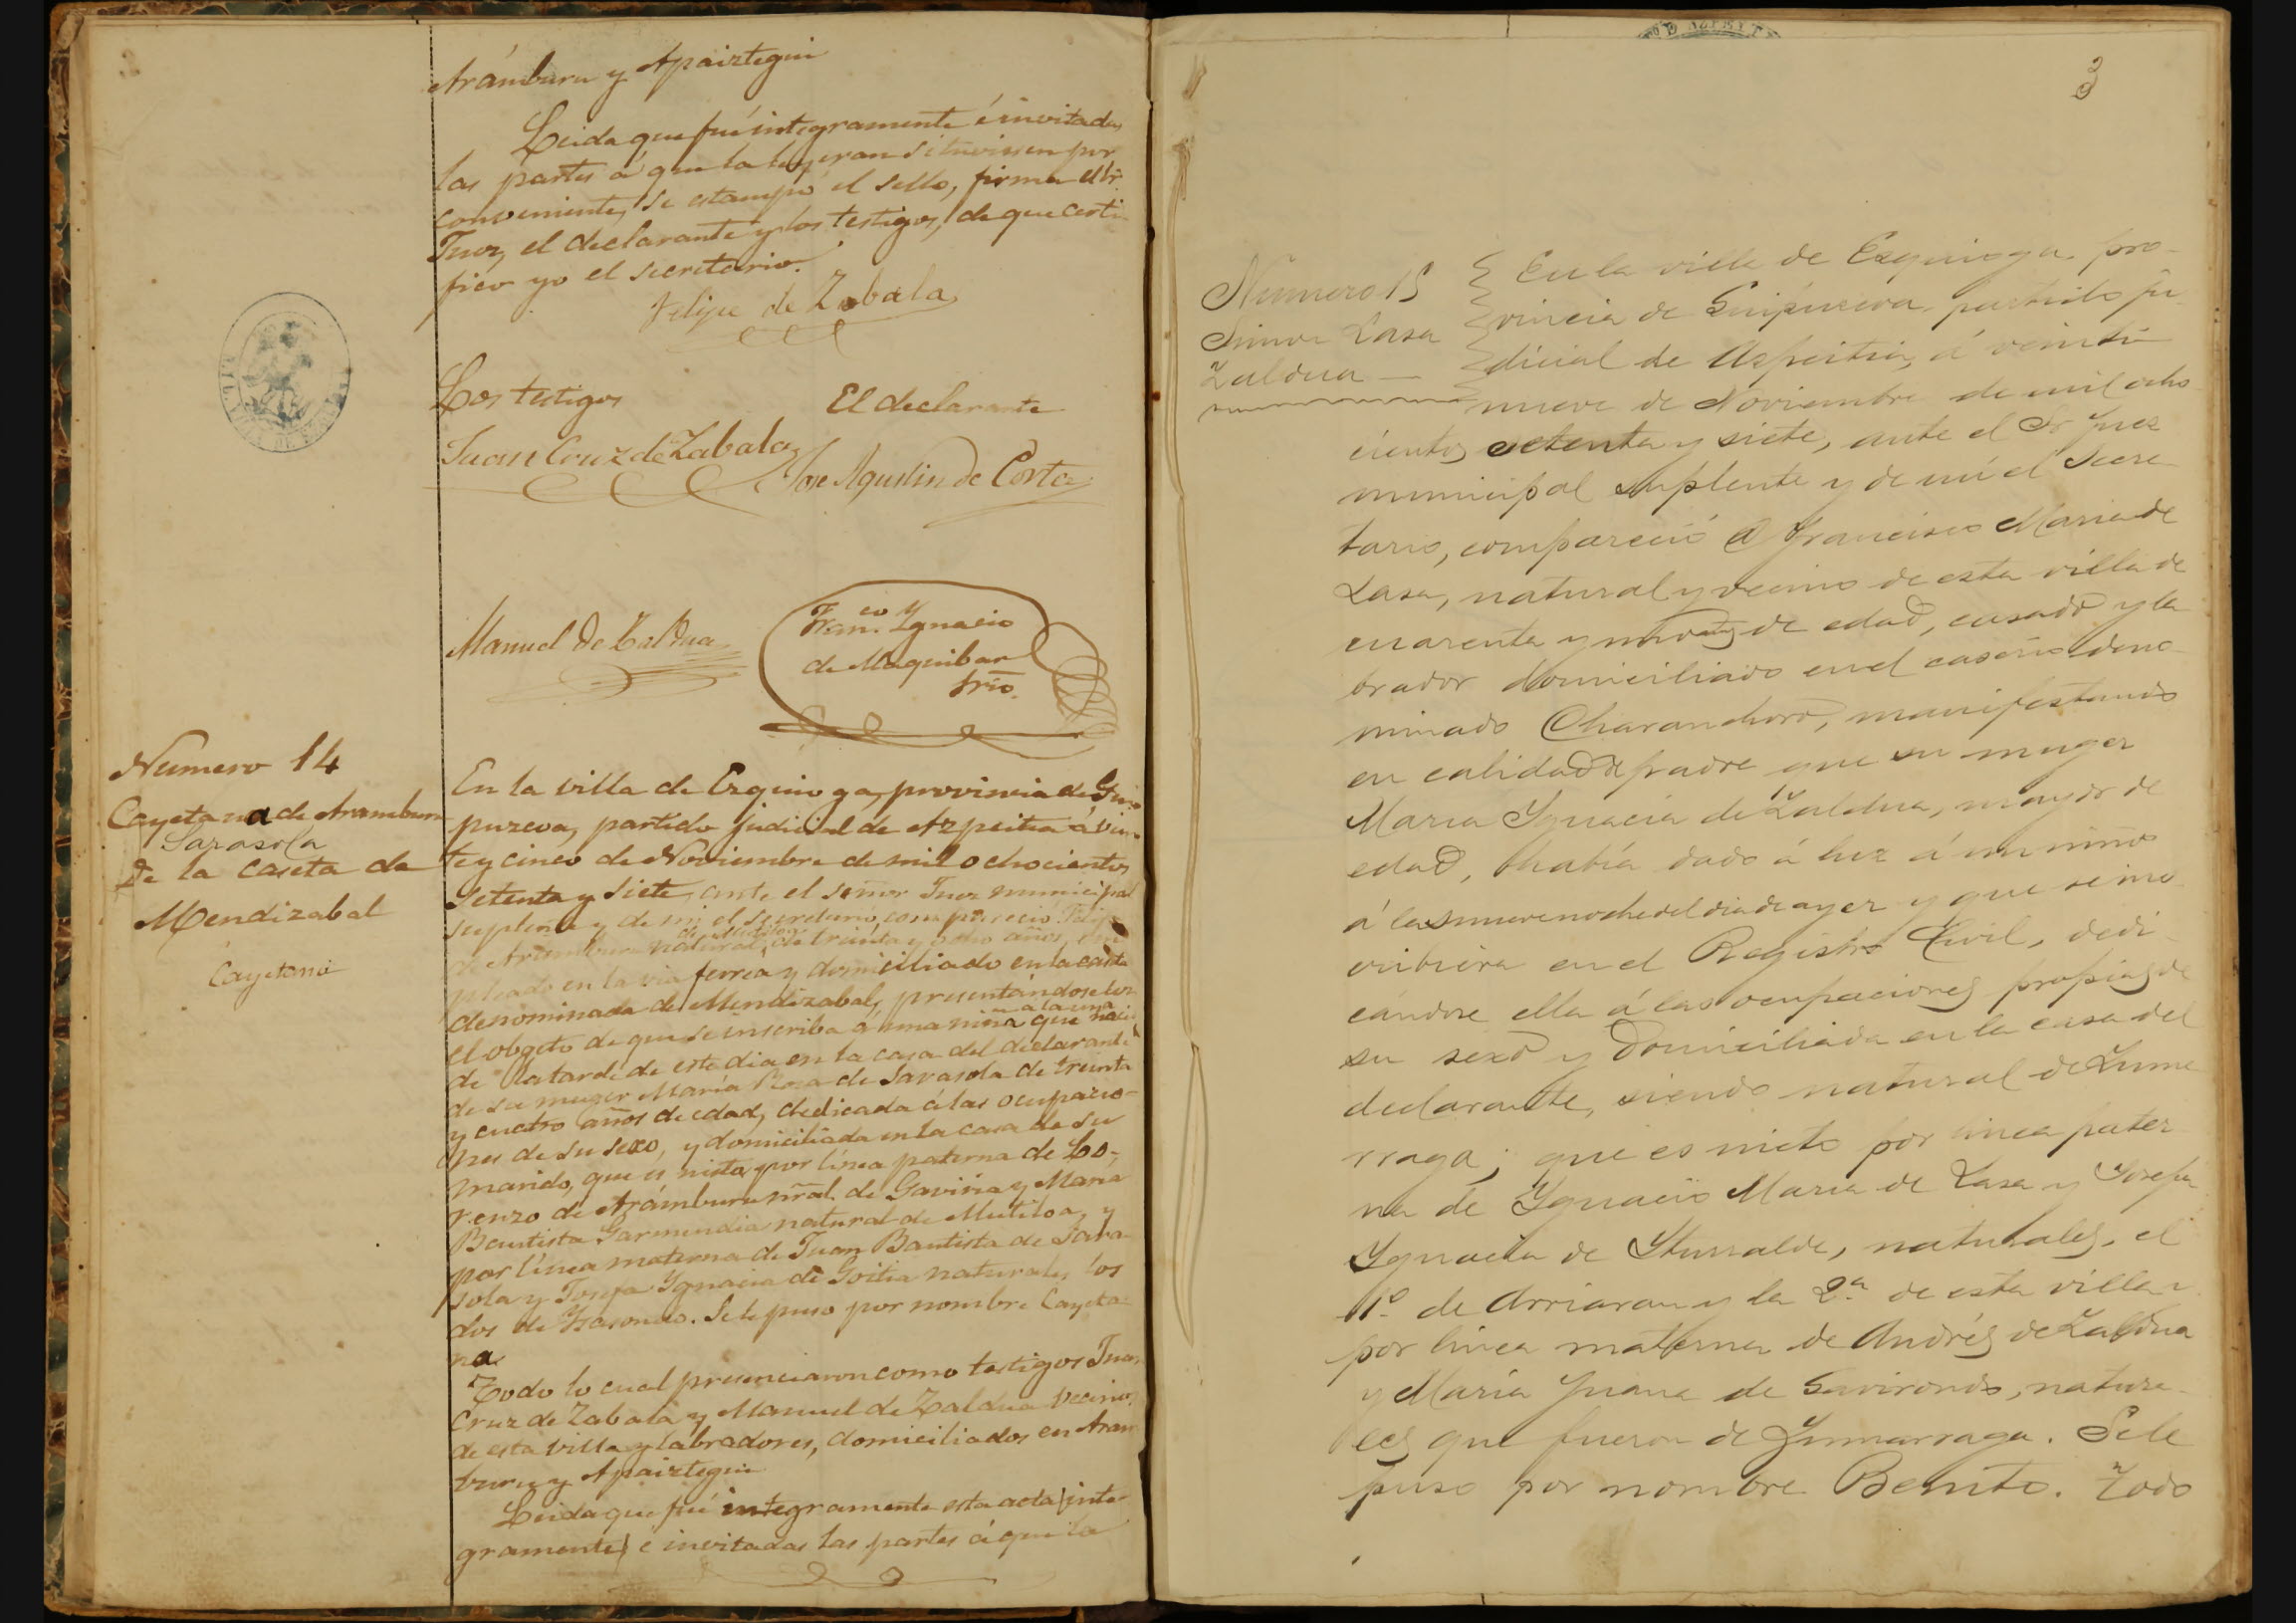 Arámburu y Apaiztegui
Leida que fué integramente é invitadas
las partes á que la leyeran si tuviesen por
conveniente, se estampó el sello, firma el Sr.
Juez, el declarante y los testigos, de que certi-
fico yo el secretario.
Felipe de Zabala
Los testigos
El declarante
Juan Cruz de Zabala
Jose Agustin de Corta
Manuel de Zaldua
Fran.co Ygnacio
de Maquibar
Srio.
Numero 14
Cayetana de Aramburu
Sarasola
De la caseta de
Mendizabal
Cayetano
En la villa de Ezquioga, provincia de Gui-
puzcoa, partido judicial de Azpeitia á vein-
te y cinco de Noviembre de mil ochocientos
setenta y siete, ante el señor Juez municipal
suplente y de mi el secretario, compareció Felipe
de Mutiloa
de Aramburu natural, de treinta y ocho años, em-
pleado en la via ferrea y domiciliado en la caseta
denominada de Mendizabal, presentándose con
el obgeto de que se inscriba á una niña que nació
á la una
de la tarde de este dia en la casa del declarante
de su muger María Rosa de Sarasola de treinta
y cuatro años de edad, dedicada á las ocupacio-
nes de su sexo, y domiciliada en la casa de su
marido, que es nieta por línea paterna de Lo-
renzo de Arámburu nral. de Gaviria y Maria
Bautista Garmendia natural de Mutiloa, y
por línea materna de Juan Bautista de Sara-
sola y Josefa Ygnacia de Goitia naturales los
dos de Ysasondo. Se le puso por nombre Cayeta-
na.
Todo lo cual presenciaron como testigos Juan
Cruz de Zabala y Manuel de Zaldua vecinos
de esta villa y labradores, domiciliados en Aram-
buru y Apaiztegui
Leida que fué integramente esta acta (inte-
gramente) é invitadas las partes á que la
3
Numero 15
Simon Lasa
Zaldua —
En la villa de Ezquioga, pro-
vincia de Guipuzcoa, partido ju-
dicial de Azpeitia, á veinti
nueve de Noviembre de mil ocho
cientos setenta y siete, ante el Sr Juez
municipal suplente y de mi el Secre-
tario, compareció D Francisco Maria de
Lasa, natural y vecino de esta villa de
cuarenta y de edad, casado y la
brador domiciliado en el caserio deno-
minado Charandoro, manifestando
en calidad de padre que su muger
Maria Ygnacia de Zaldua, mayor de
edad, había dado á luz á un niño
á las nueve noche del dia de ayer y que se ins-
cribiera en el Registro Civil, dedi-
cándose ella á las ocupaciones propias de
su sexo y domiciliada en la casa del
declarante, siendo natural de Zuma-
rraga; que es nieto por linea pater-
na de Ygnacio Maria de Lasa y Josefa
Ygnacia de Yturralde, naturales, el
1º de Arriaran y la 2ª de esta villa y
por linea materna de Andrés de Zaldua
y María Juana de Gavirondo, natura-
les que fueron de Zumarraga. Se le
puso por nombre Benito. Todo